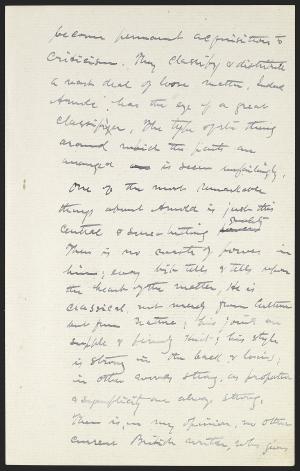 become permanent acquisitions to
criticism. They classify & distribute
a vast deal of loose matter. Indeed
Arnold has the eye of a great
classifier. The type of the thing
around which the facts are
arranged is seen unfailingly.
One of the most remarkable
things about Arnold is just this
central & sure-hitting quality
There is no waste of power in
him; every blow tells & tells upon
the heart of the matter. He is
classical, not merely from culture
but from nature; his joints are
supple & firmly knit; his style
is strong in the back & loins,
in other words strong, as proportion
& simplicity are always strong.
There is, in my opinion, no other
current British writer, who gives